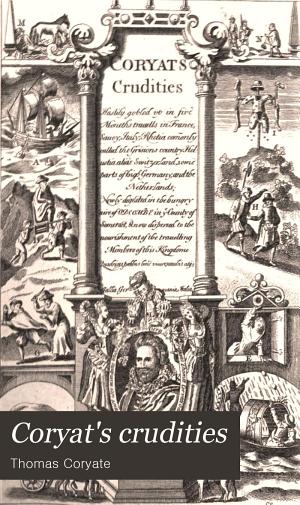 CORYATS
Crudities
Hastily gobled vp in five
Moneths travells in France,
Savoy, Italy, Rhetia comonly
called the Grisons country, Hel
vetia aliàs Switzerland, some
parts of high Germany, and the
Netherlands;
Newly digested in the hungry
aire of ODCOMBE in ye County of
Somerset, & now dispersed to the
nourishment of the travelling
Members of this Kingdome
A
H
Coryat's crudities
Thomas Coryate